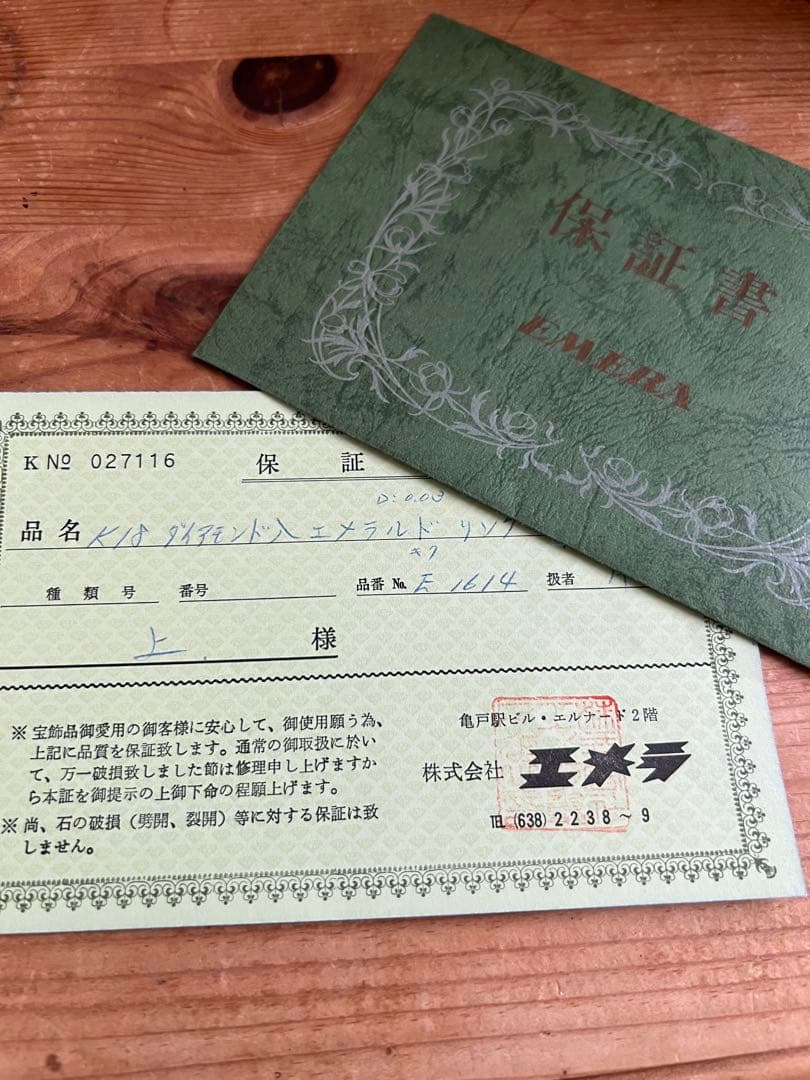 保証書
EMERA
K No 027116
保証
D:0.03
品名 K18 ダイアモンド入 エメラルド リング
種類号 番号 品番 No. E 1614 扱者
上 様
※ 宝飾品御愛用の御客様に安心して、御使用願う為、
上記に品質を保証致します。通常の御取扱に於い
て、万一破損致しました節は修理申し上げますか
ら本証を御提示の上御下命の程願上げます。
※ 尚、石の破損（劈開、裂開）等に対する保証は致
しません。
亀戸駅ビル・エルナード2階
株式会社 エメラ
TEL (638) 2238～9